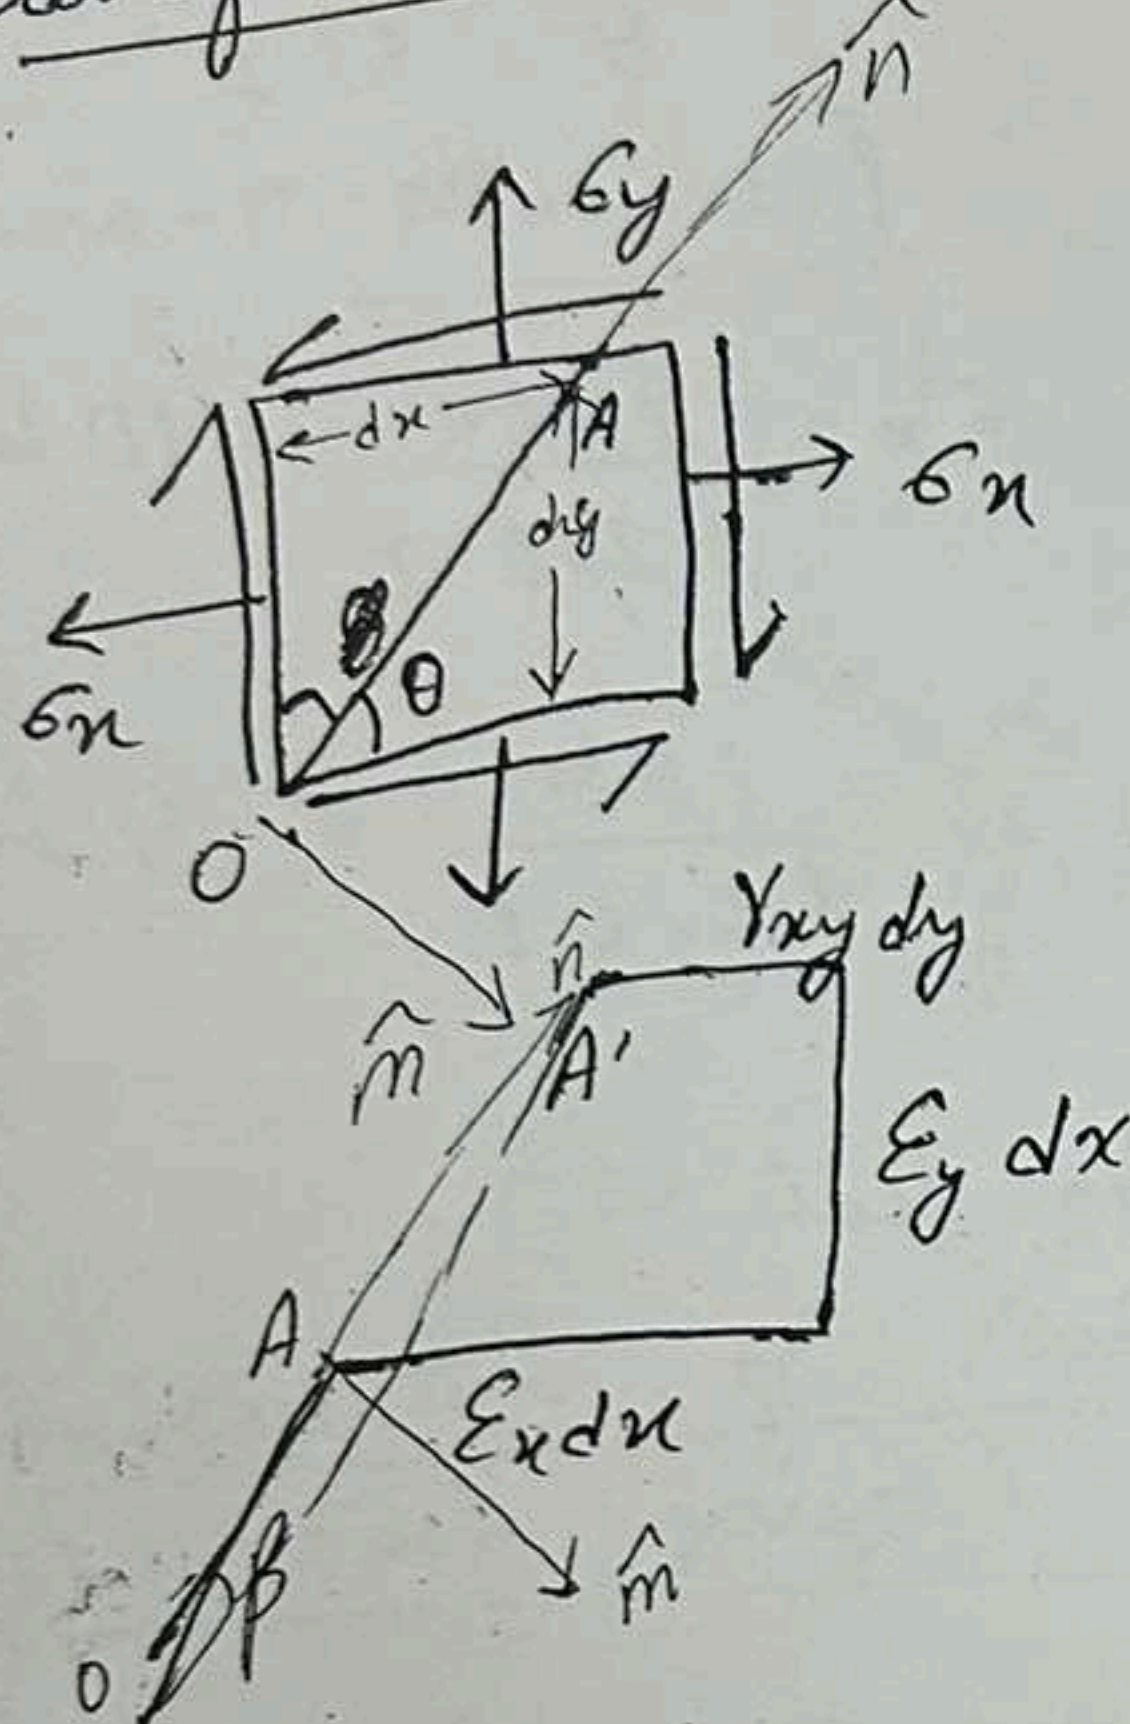 n̂
σy
dx
A
dy
σx
θ
σx
O
γxy dy
n̂
m̂
A'
εy dx
A
εx dx
m̂
β
O